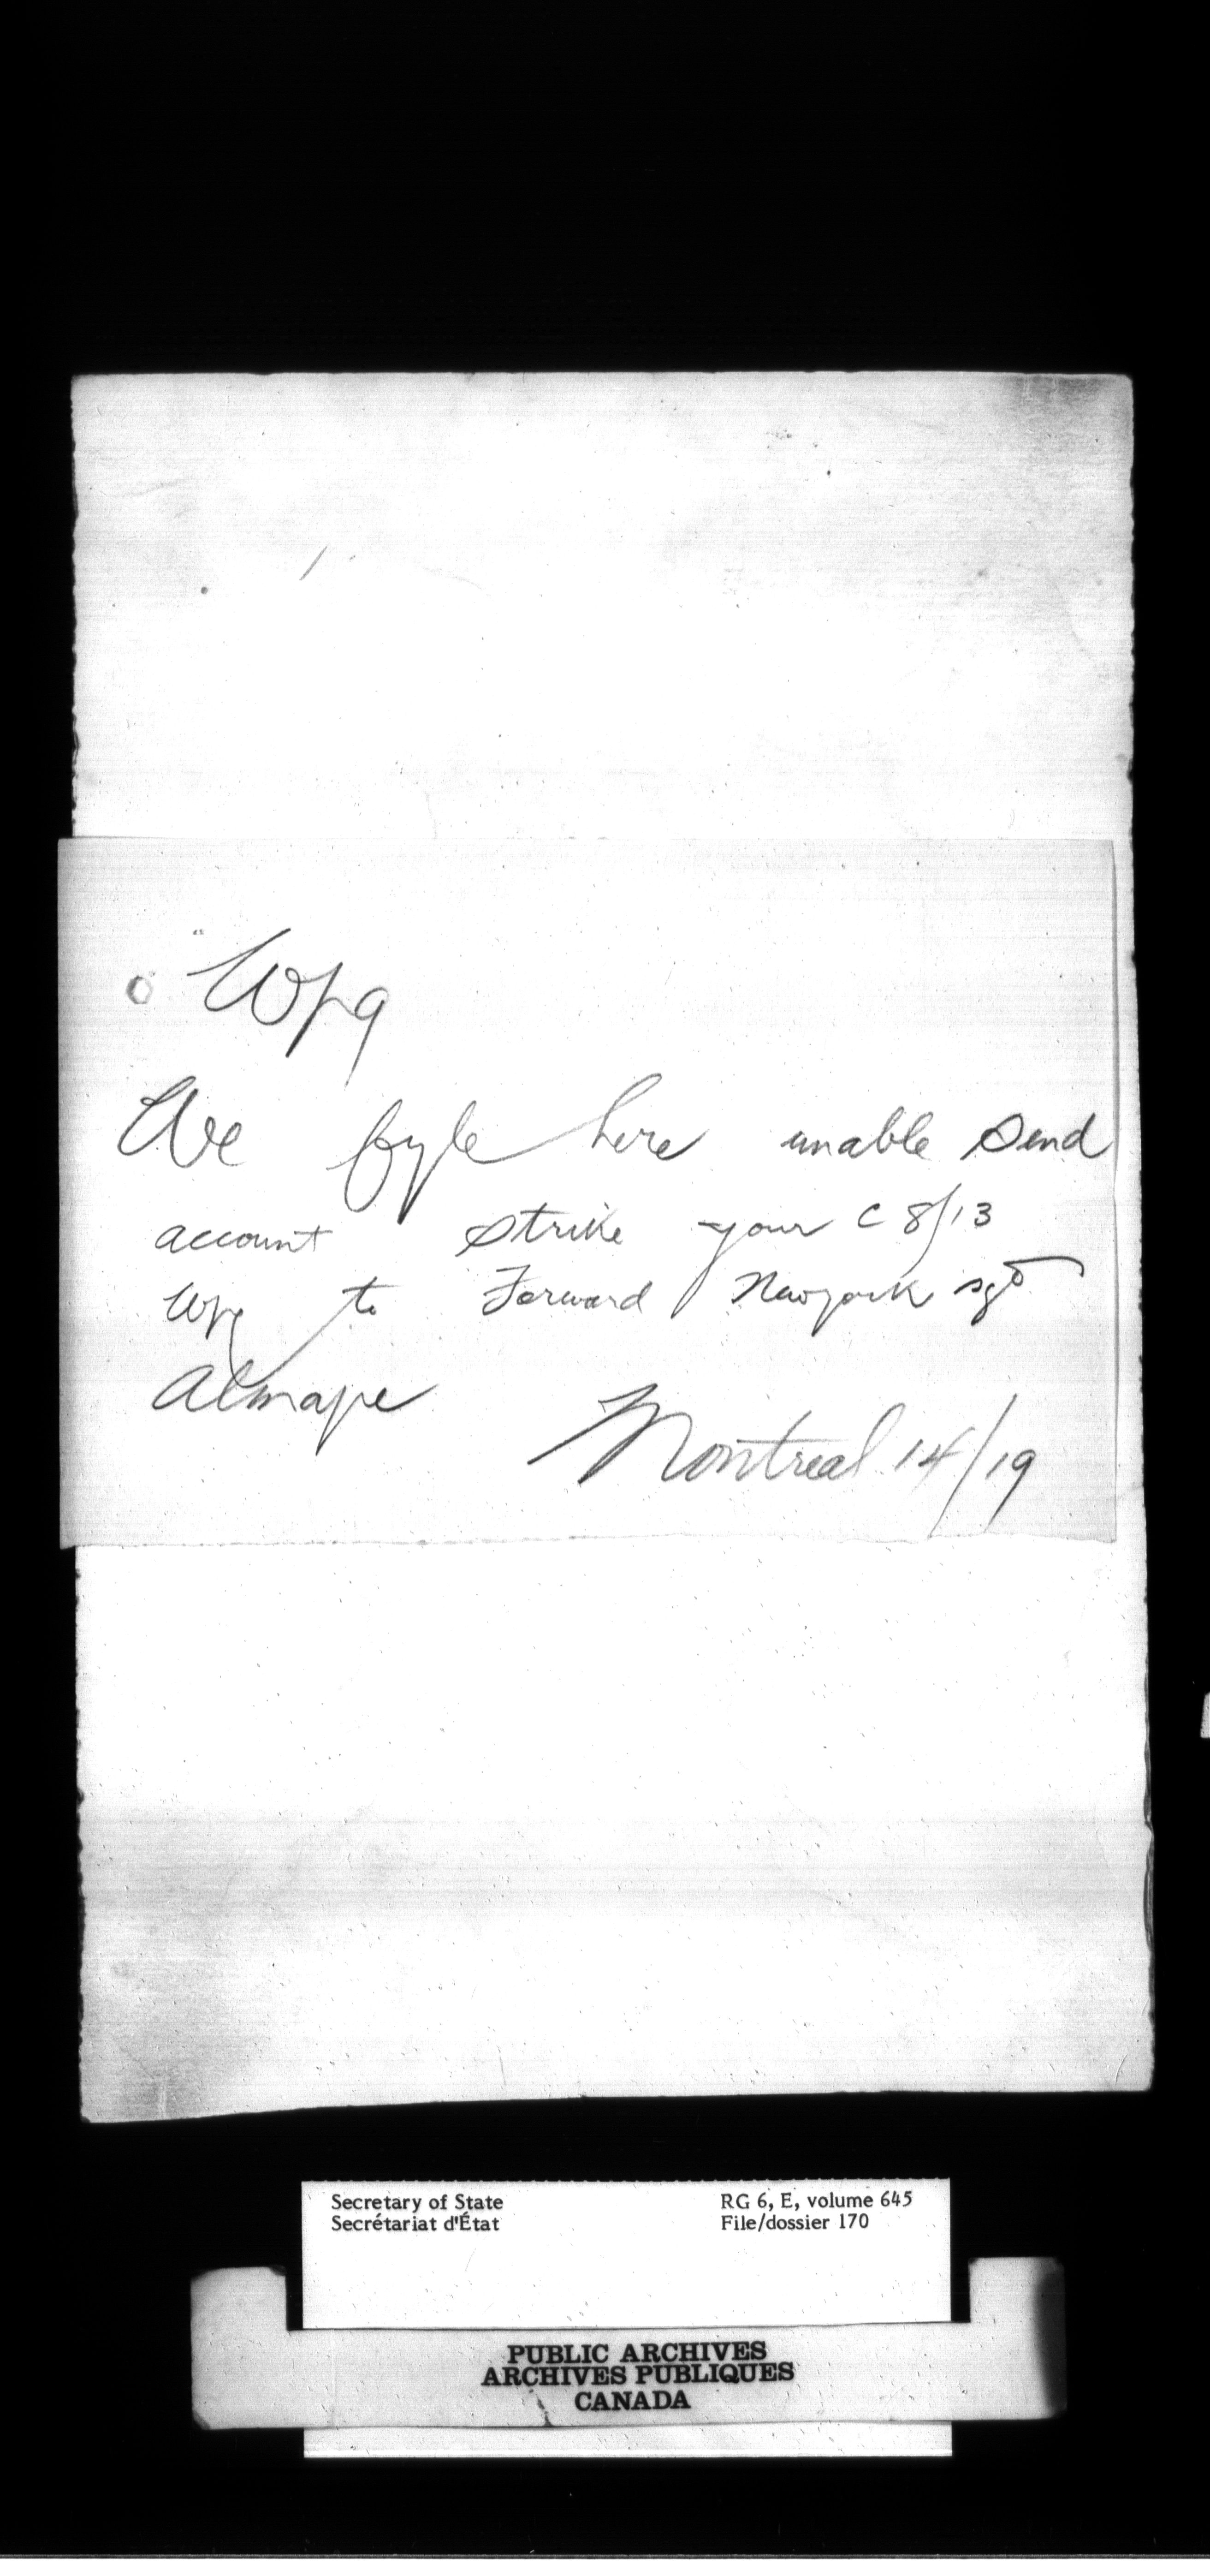 Wpg
We fyle here unable send
account strike your C 8/13
Wpg to Forward Newyork sgd
Almape
Montreal 14/19
Secretary of State
Secrétariat d'État
RG 6, E, volume 645
File/dossier 170
PUBLIC ARCHIVES
ARCHIVES PUBLIQUES
CANADA